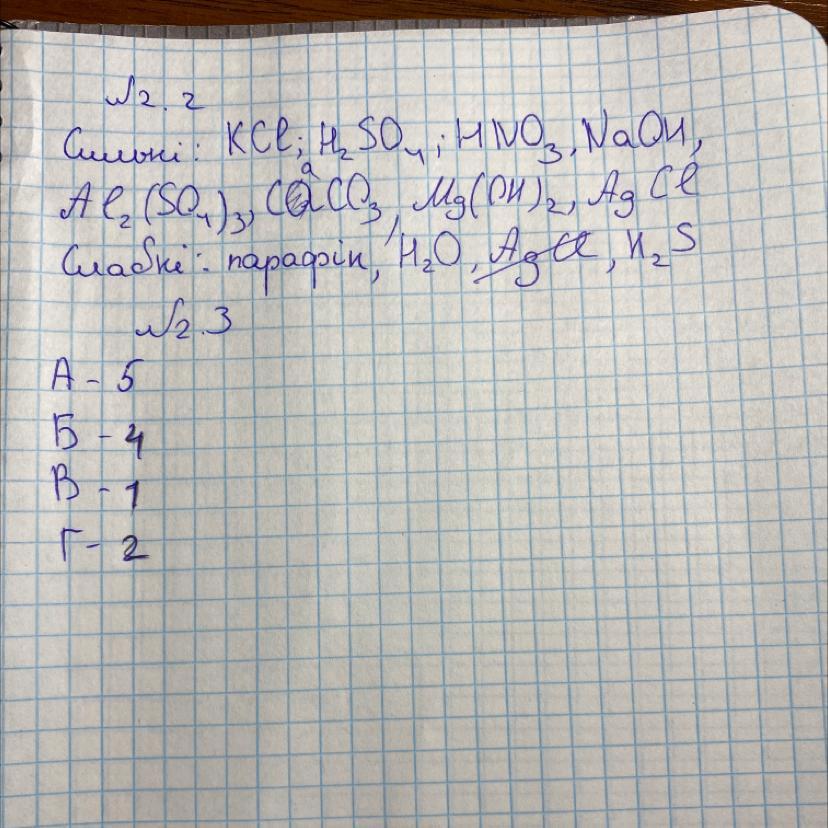 №2.2
Сильні: KCl; H₂SO₄; HNO₃, NaOH,
Al₂(SO₄)₃, CaCO₃, Mg(OH)₂, AgCl
Слабкі: парафін, H₂O, AgCl, H₂S
№2.3
А - 5
Б - 4
В - 1
Г - 2